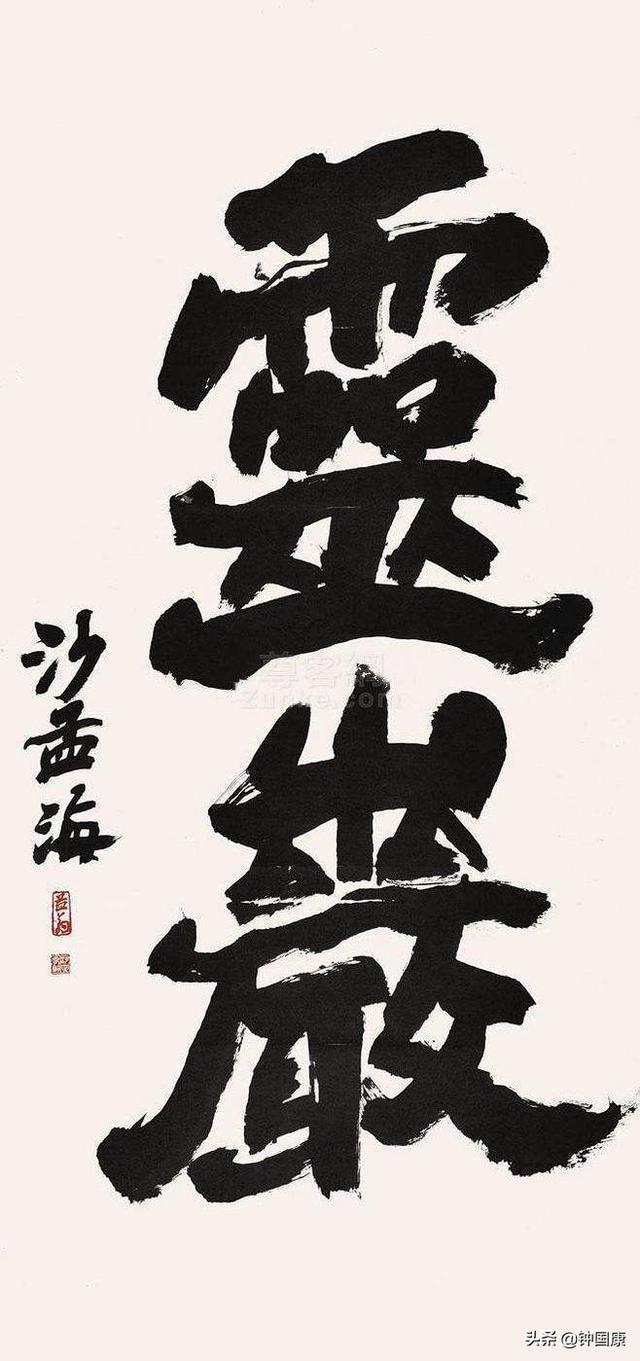 靈巖
沙孟海
尊客網
Zunke.com
头条 @钟国康